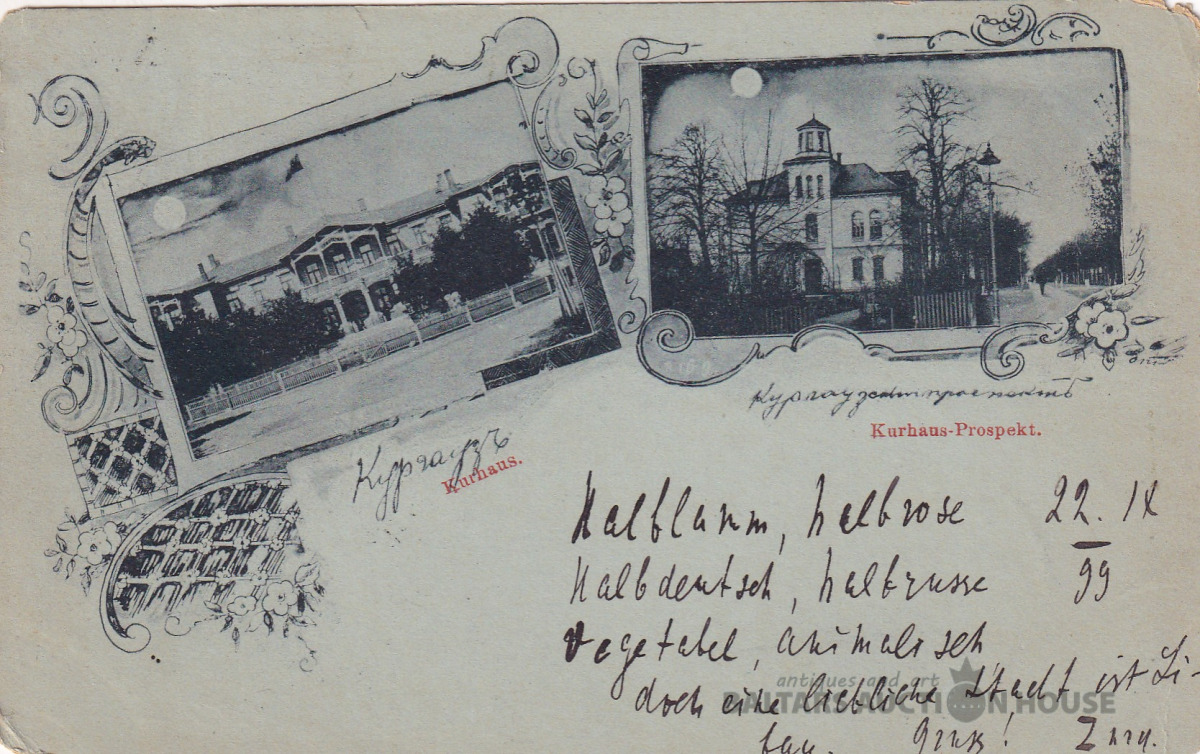 Кургаузъ
Kurhaus.
Кургаузскій проспектъ
Kurhaus-Prospekt.
Halblamm, halbrose 22. IX
Halbdeutsch, halbrusse 99
Vegetabel, animalisch
doch eine liebliche Stadt ist Li-
bau. Gruss!
antiques and art
BALTARS AUCTION HOUSE